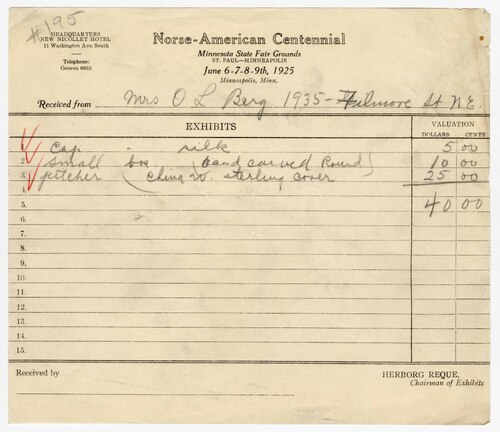 #195
HEADQUARTERS
NEW NICOLLET HOTEL
11 Washington Ave. South
Telephone:
Geneva 6035
Norse-American Centennial
Minnesota State Fair Grounds
ST. PAUL—MINNEAPOLIS
June 6-7-8-9th, 1925
Minneapolis, Minn.
Received from Mrs O L Berg 1935 - Filmore St N.E.
EXHIBITS VALUATION
DOLLARS CENTS
1. Cap - silk 5 00
2. Small box (hand carved Round) 10 00
3. pitcher (china w. sterling cover 25 00
4.
5. 40 00
6.
7.
8.
9.
10.
11.
12.
13.
14.
15.
Received by HERBORG REQUE,
Chairman of Exhibits